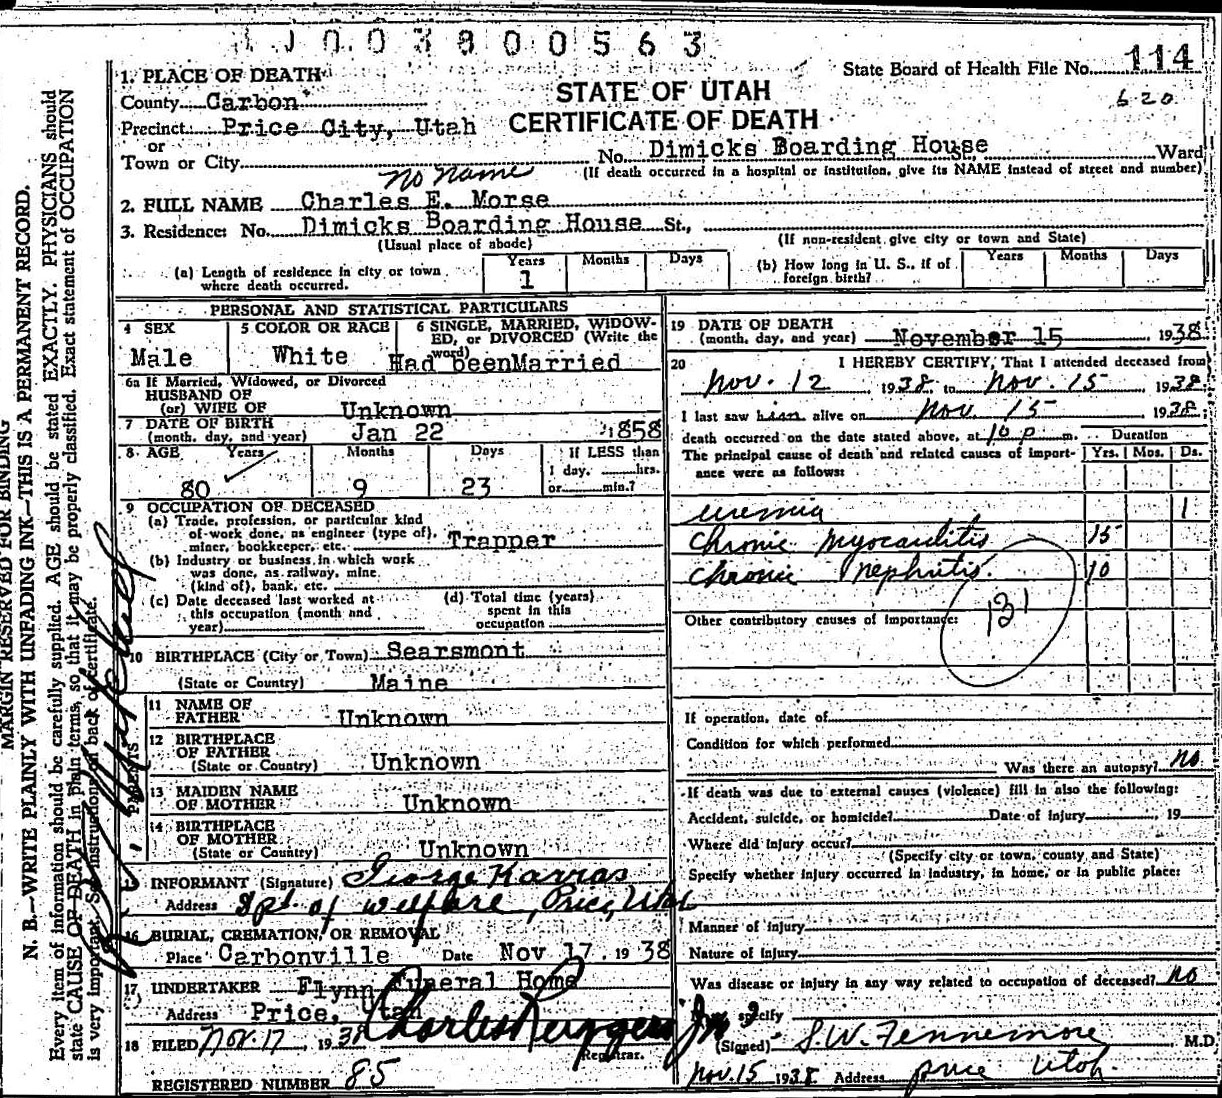 1 J 0 0 3 8 0 0 5 6 3
State Board of Health File No. 114
620
1. PLACE OF DEATH
County Carbon
Precinct Price City, Utah
or
Town or City
STATE OF UTAH
CERTIFICATE OF DEATH
No. Dimicks Boarding House St., Ward
(If death occurred in a hospital or institution, give its NAME instead of street and number)
no name
2. FULL NAME Charles E. Morse
3. Residence: No. Dimicks Boarding House St.,
(Usual place of abode)
(If non-resident give city or town and State)
(a) Length of residence in city or town where death occurred. Years 1 Months Days
(b) How long in U. S., if of foreign birth? Years Months Days
PERSONAL AND STATISTICAL PARTICULARS
4 SEX
Male
5 COLOR OR RACE
White
6 SINGLE, MARRIED, WIDOWED, or DIVORCED (Write the word)
Had beenMarried
6a If Married, Widowed, or Divorced
HUSBAND OF
(or) WIFE OF Unknown
7 DATE OF BIRTH
(month, day, and year) Jan 22 1858
8 AGE Years Months Days If LESS than
1 day, hrs.
or min.?
80 9 23
9 OCCUPATION OF DECEASED
(a) Trade, profession, or particular kind
of work done, as engineer (type of),
miner, bookkeeper, etc. Trapper
(b) Industry or business in which work
was done, as railway, mine
(kind of), bank, etc.
(c) Date deceased last worked at
this occupation (month and
year)
(d) Total time (years)
spent in this
occupation
10 BIRTHPLACE (City or Town) Searsmont
(State or Country) Maine
PARENTS
11 NAME OF
FATHER Unknown
12 BIRTHPLACE
OF FATHER
(State or Country) Unknown
13 MAIDEN NAME
OF MOTHER Unknown
14 BIRTHPLACE
OF MOTHER
(State or Country) Unknown
15 INFORMANT (Signature) George Karras
Address Dpt. of welfare, Price, Utah
16 BURIAL, CREMATION, OR REMOVAL
Place Carbonville Date Nov 17. 1938
17 UNDERTAKER Flynn Funeral Home
Address Price, Utah
18 FILED Nov. 17, 1938 Charles Ruggeri
Registrar.
REGISTERED NUMBER 85
19 DATE OF DEATH
(month, day, and year) November 15 1938
20 I HEREBY CERTIFY, That I attended deceased from
Nov. 12 1938 to Nov. 15 1938
I last saw him alive on Nov 15 1938;
death occurred on the date stated above, at 10 p m.
Duration
The principal cause of death and related causes of importance were as follows: Yrs. Mos. Ds.
uremia 1
Chronic Myocarditis 15
Chronic nephritis. 10
131
Other contributory causes of importance:
If operation, date of
Condition for which performed
Was there an autopsy? no
If death was due to external causes (violence) fill in also the following:
Accident, suicide, or homicide? Date of injury , 19
Where did injury occur?
(Specify city or town, county and State)
Specify whether injury occurred in industry, in home, or in public place:
Manner of injury
Nature of injury
Was disease or injury in any way related to occupation of deceased? no
specify
(Signed) S. W. Fennemore M.D.
Nov. 15 1938 Address Price Utah.
MARGIN RESERVED FOR BINDING
N. B.—WRITE PLAINLY WITH UNFADING INK—THIS IS A PERMANENT RECORD.
Every item of information should be carefully supplied. AGE should be stated EXACTLY. PHYSICIANS should
state CAUSE OF DEATH in plain terms, so that it may be properly classified. Exact statement of OCCUPATION
is very important. See instructions on back of certificate.